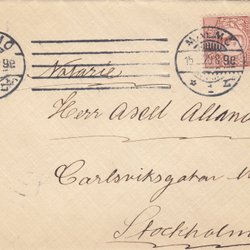 MALMÖ
Notarie
Herr Axell Alland
Carlsviksgatan
Stockholm